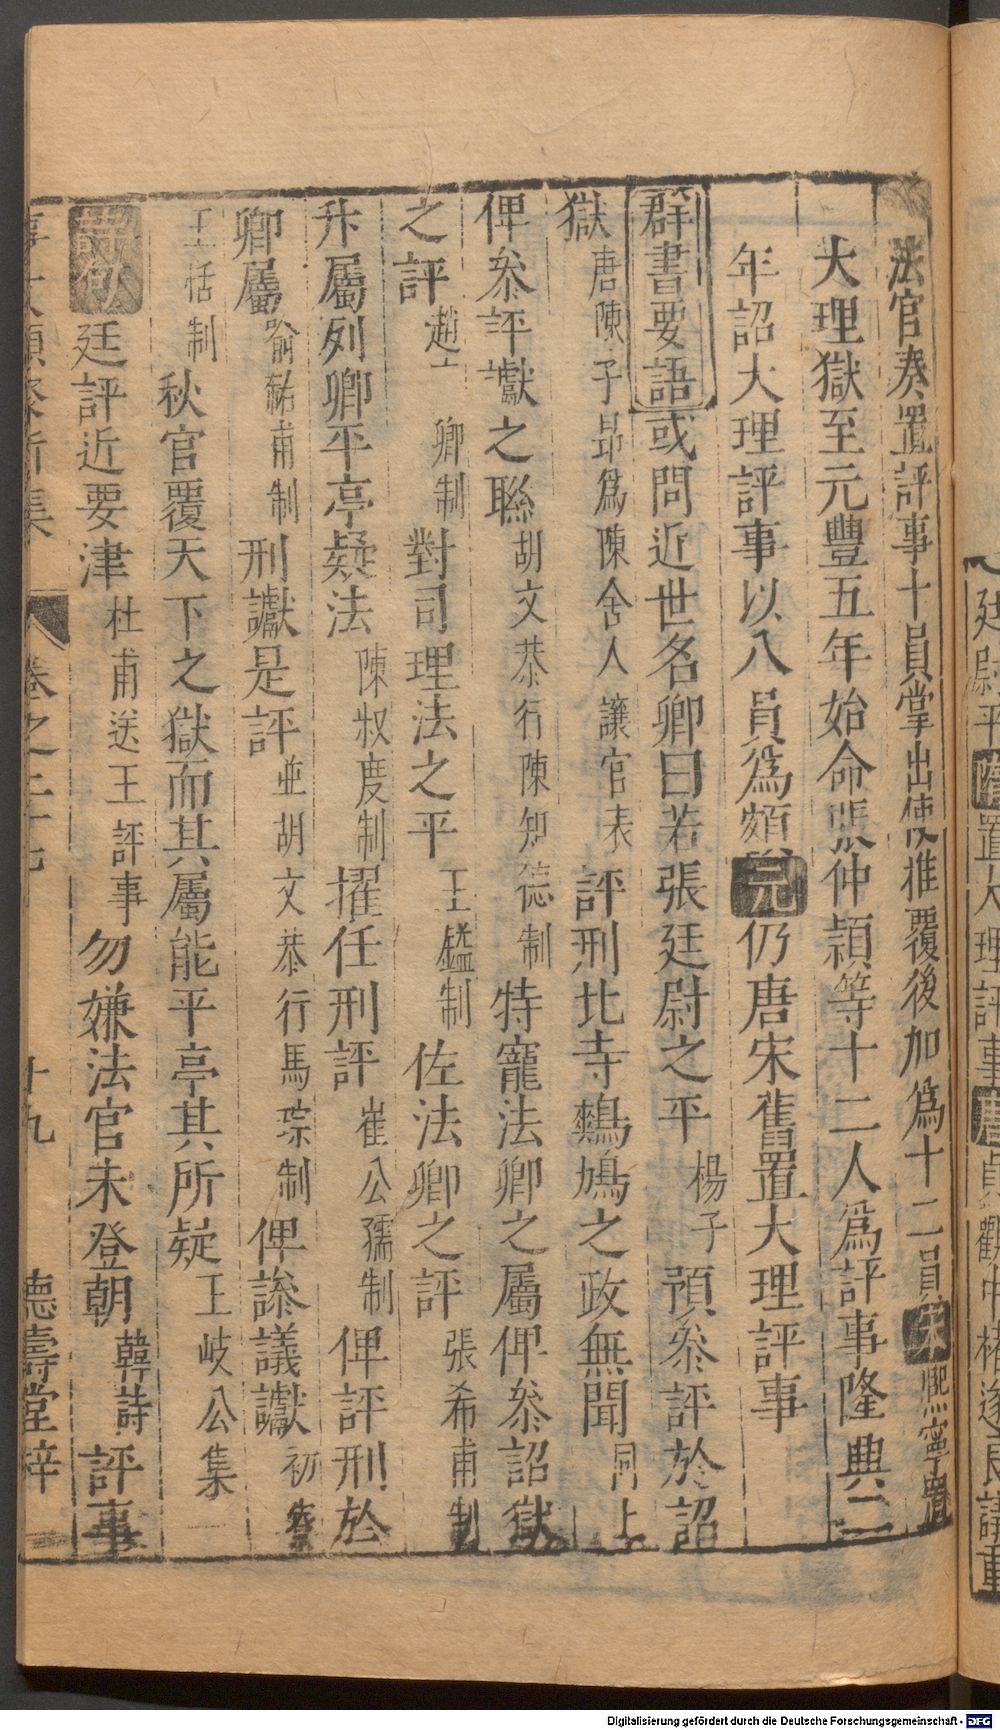 廷尉平隋置大理評事唐貞觀中褚遂良議重
法官奏置評事十員掌出使推覆後加爲十二員宋熙寧置
大理獄至元豐五年始命張仲頴等十二人爲評事隆興二
年詔大理評事以八員爲額元仍唐宋舊置大理評事
群書要語或問近世名卿曰若張廷尉之平楊子預叅評於詔
獄唐陳子昻爲陳舍人讓官表評刑北寺鷞鳩之政無聞同上
俾叅評讞之聮胡文恭行陳知德制特寵法卿之屬俾叅詔獄
之評趙卿制對司理法之平王鎰制佐法卿之評張希甫制
升屬列卿平亭疑法陳叔度制擢任刑評崔公孺制俾評刑於
卿屬喻祐甫制刑讞是評並胡文恭行馬琮制俾諺議讞初寮
王恬制秋官覆天下之獄而其屬能平亭其所疑王岐公集
詩句廷評近要津杜甫送王評事勿嫌法官未登朝韓詩評事
事文類聚新集 卷之二十七 十九 德壽堂梓
Digitalisierung gefördert durch die Deutsche Forschungsgemeinschaft - DFG